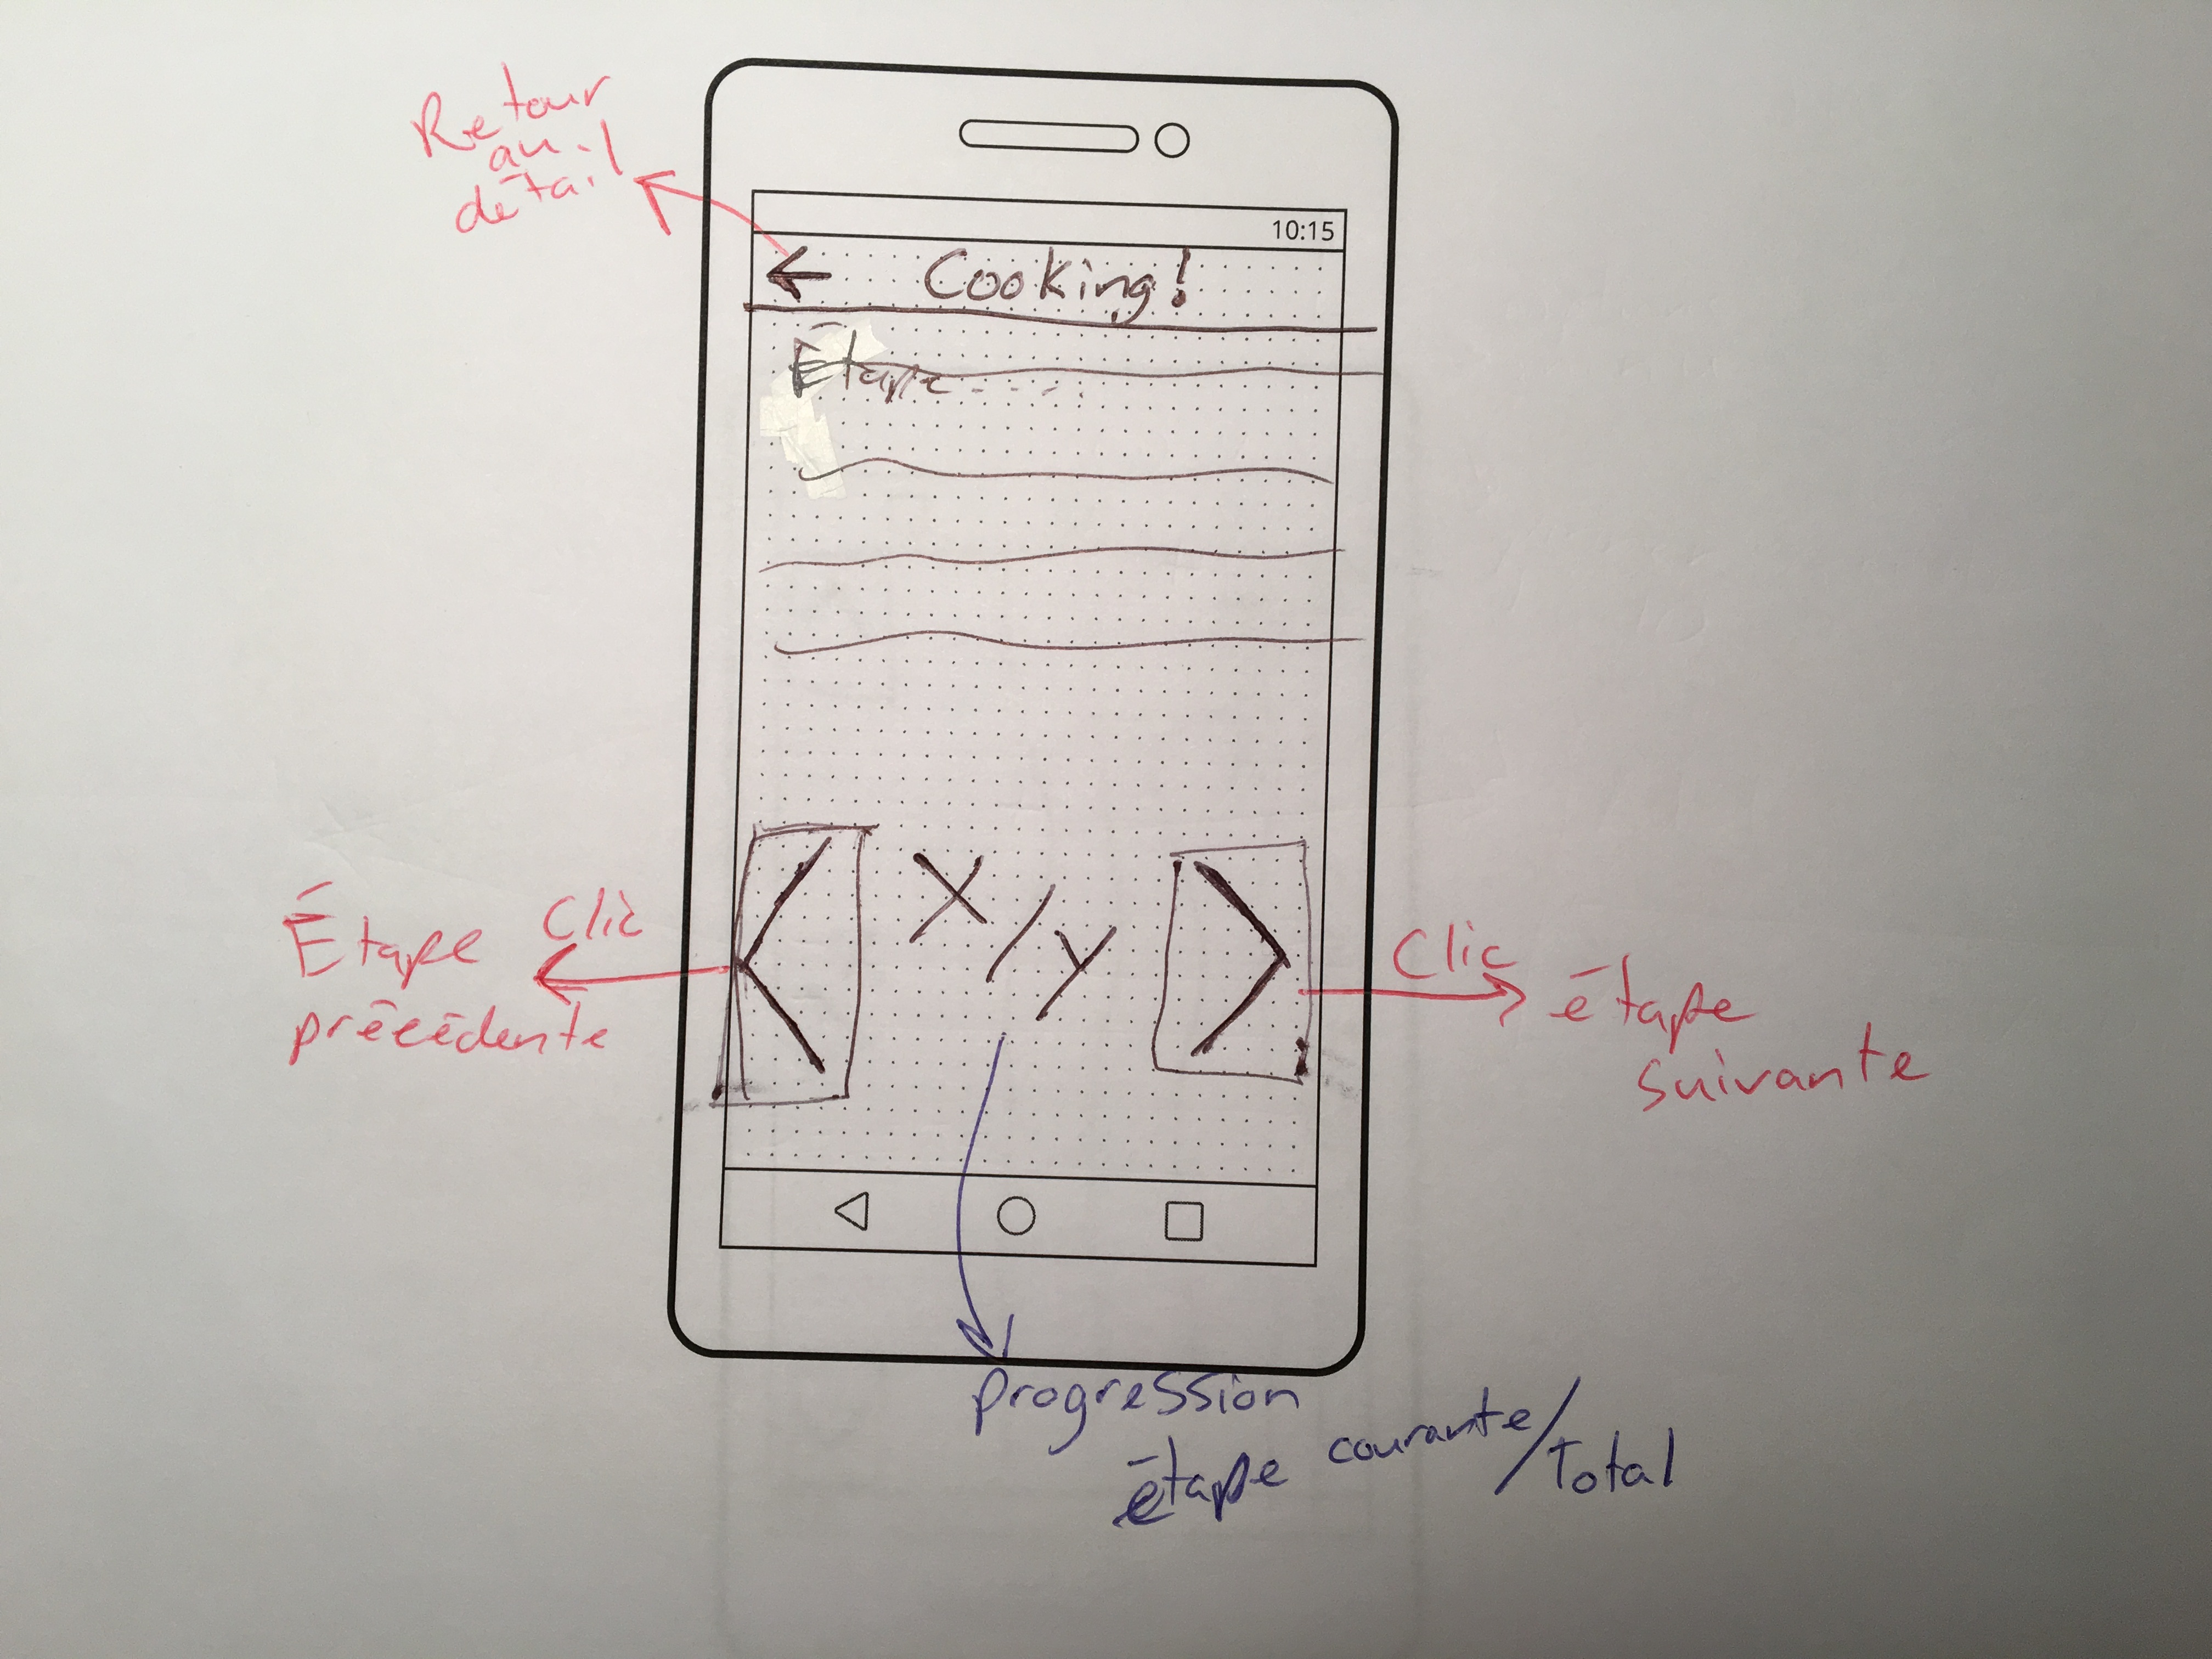 Retour
au
détail
10:15
Cooking!
Étape....
X/y
Étape
précédente
Clic
Clic
étape
suivante
progression
étape courante/Total